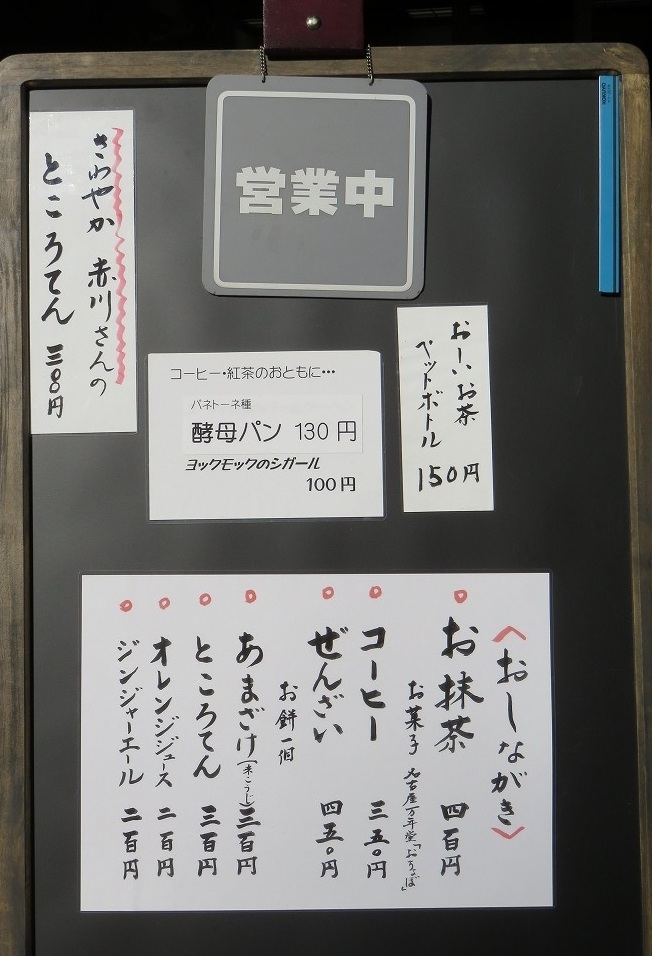 営業中
さわやか 赤川さんの
ところてん 三〇〇円
コーヒー・紅茶のおともに…
パネトーネ種
酵母パン 130円
ヨックモックのシガール
100円
おーいお茶
ペットボトル
150円
〈おしながき〉
お抹茶 四百円
お菓子 名古屋万年堂「おちょぼ」
コーヒー 三五〇円
ぜんざい 四五〇円
お餅一個
あまざけ(米こうじ)三百円
ところてん 三百円
オレンジジュース 二百円
ジンジャーエール 二百円